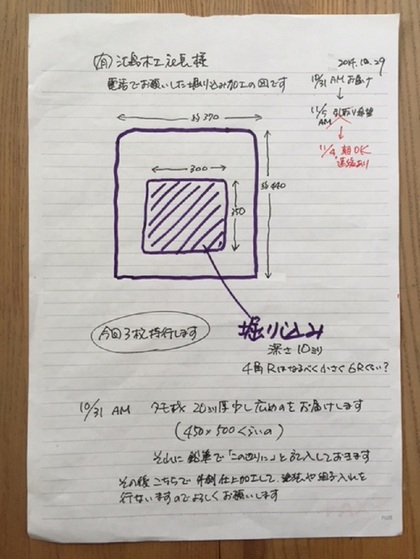 (有) 木工 社長 様
2014.10.29
電話でお願いした堀り込み加工の図です
10/31 AM お届け
11/5 AM 引取り希望
11/4 朝OK
連絡あり
約370
300
約440
350
堀り込み
深さ 10ミリ
今回3枚持行します
4角Rはなるべく小さく 6Rぐらい?
10/31 AM タモ材 20ミリ厚 少し広めのをお届けします
(450×500ぐらいの)
それに鉛筆で「この辺りに」と記入しておきます
その後こちらで外側仕上加工して、塗装や 入れを
行ないますのでよろしくお願いします